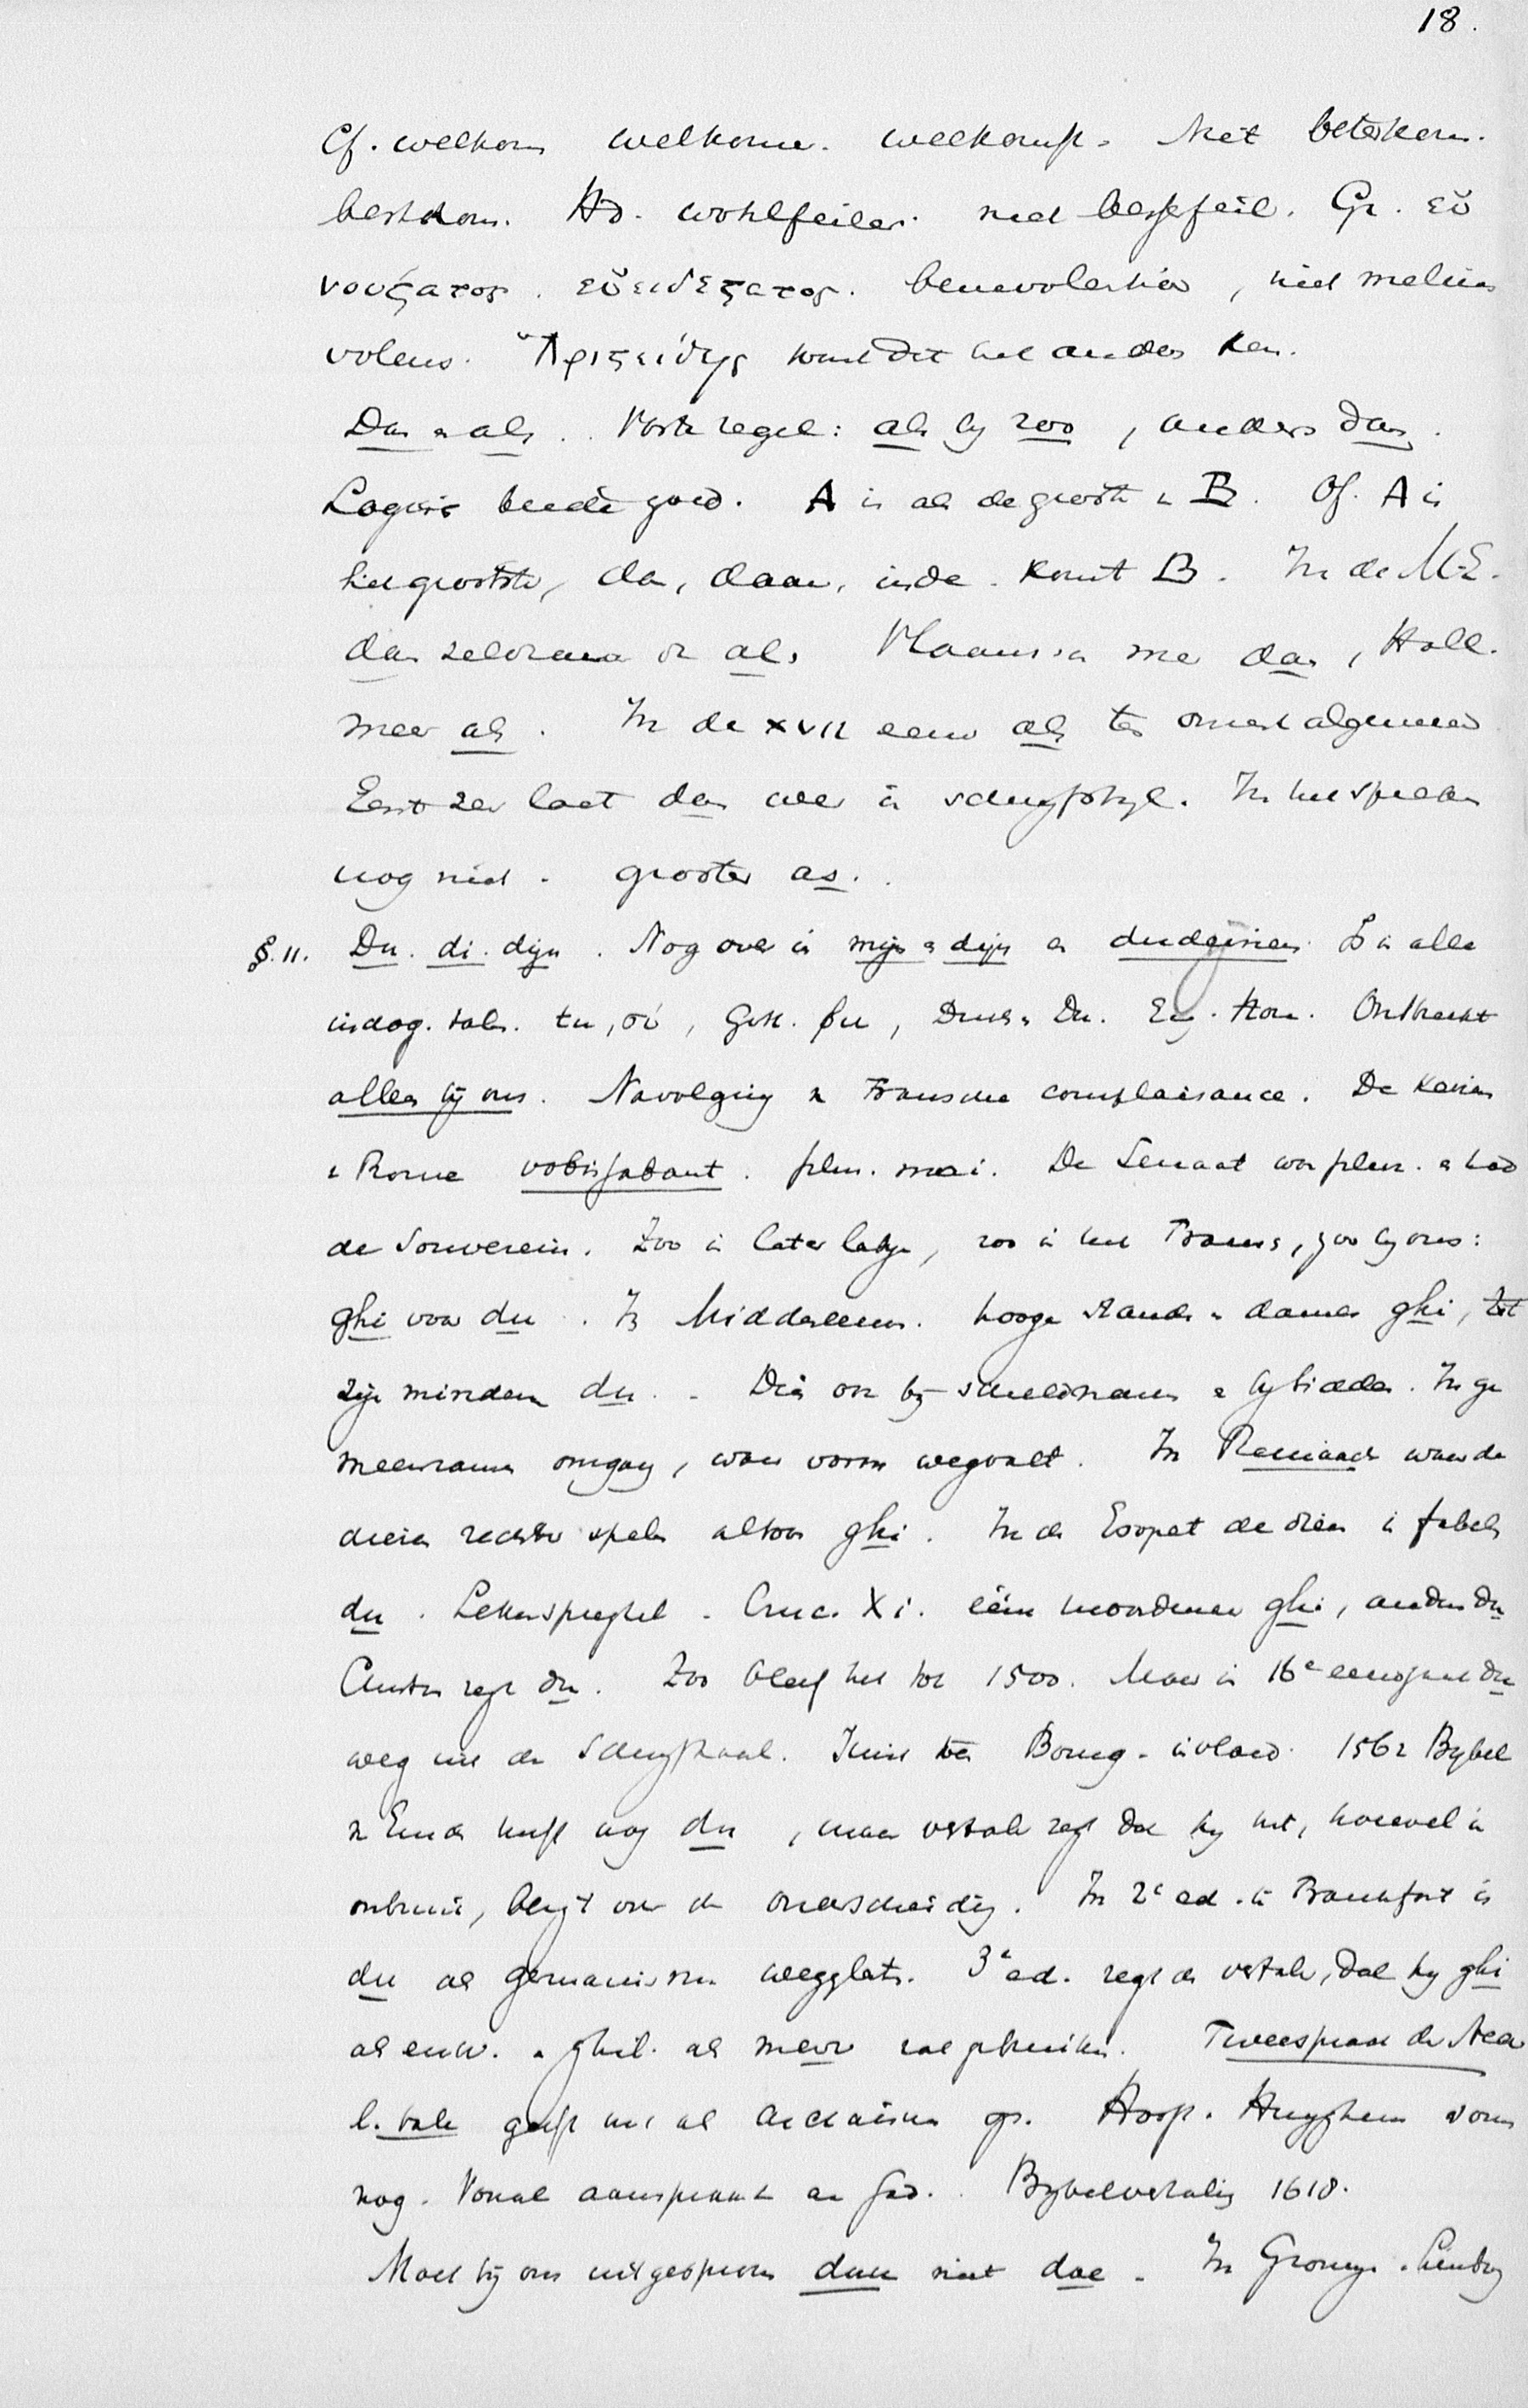 18.
Cf. welkom welkomer. welkomst. Niet beterkom.
bestkom. Hd. wohlfeiler. niet besserfeil. Gr. εὐ
νουςατος. εὐειδεςατος. benevolentior, niet melius
volens. Ἀριςείδης want dit het ander ken.
Dan & als. Vaste regel: als by zoo, anders dan.
Logisch beide goed. A is als de grootste B. Of. A is
het grootste, dan, daar, inde komt B. In de M.E.
dan zeldzamer als Vlaamsch mee dan, Holl.
meer als. In de XVII eeuw als ten onzent algemeen
Eerst zeer laat dan weer in schryfstyl. In het spreken
nog niet. grooter as.
§.11. Du. di. dyn. Nog over in myn & dyn en dudynen. Is in alle
indog. talen. tu, σύ, Goth. þu, Duits. Du. Eng. thou. Ontbreekt
alleen by ons. Navolging Fransche complaisance. De keizers
Rome vobisabant. plur. maj. De Senaat was plur. & had
de Souverein. Zoo in later latyn, zoo in het Frans, zoo by ons:
ghi voor du. In Middeleeuw. hooge stand & dames ghi, tot
zyn minderen du. Dus ook by scheldnamen & by bidden. In ge
meenzamen omgang, waar vorm wegvalt. In Reinaert waar de
dieren rechter spelen altoos ghi. In de Esopet de dieren in fabels
du. Lekenspieghel. Cruc. Xi. één moordenaar ghi, ander du
Christus zegt du. Zoo bleef het tot 1500. Maar in 16e eeuw gaat du
weg uit de schryftaal. Juist toen Bourg. invloed. 1562 Bybel
Emden heeft nog du, maar vertaler zegt dat hy het, hoewel in
onbruik, bezigt om de onderscheiding. In 2e ed. te Frankfort is
du als germanisme weggelaten. 3e ed. zegt de vertaler, dat hy ghi
als enkv. & ghil. als meerv zal gebruiken. Tweespraak der Neder
l. tale geeft het als archaisme op. Hooft. Huyghens soms
nog. Vooral aanspraak aan God. Bybelvertaling 1618.
Moet by ons uitgesproken duu niet doe. In Groning. Limburg